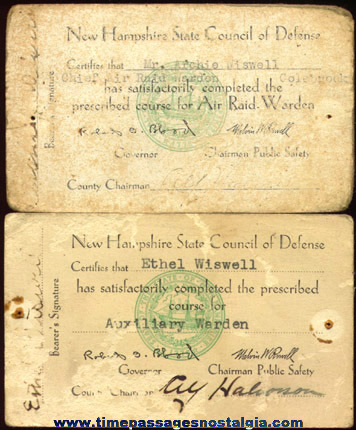 New Hampshire State Council of Defense
Certifies that Mr. Archie Wiswell
Chief Air Raid Warden Colebrook
has satisfactorily completed the
prescribed course for Air Raid Warden
Robert O. Blood
Governor Chairman Public Safety
County Chairman
Bearer's Signature
New Hampshire State Council of Defense
Certifies that Ethel Wiswell
has satisfactorily completed the prescribed
course for
Auxiliary Warden
Robert O. Blood
Governor Chairman Public Safety
County Chairman
Bearer's Signature
www.timepassagesnostalgia.com